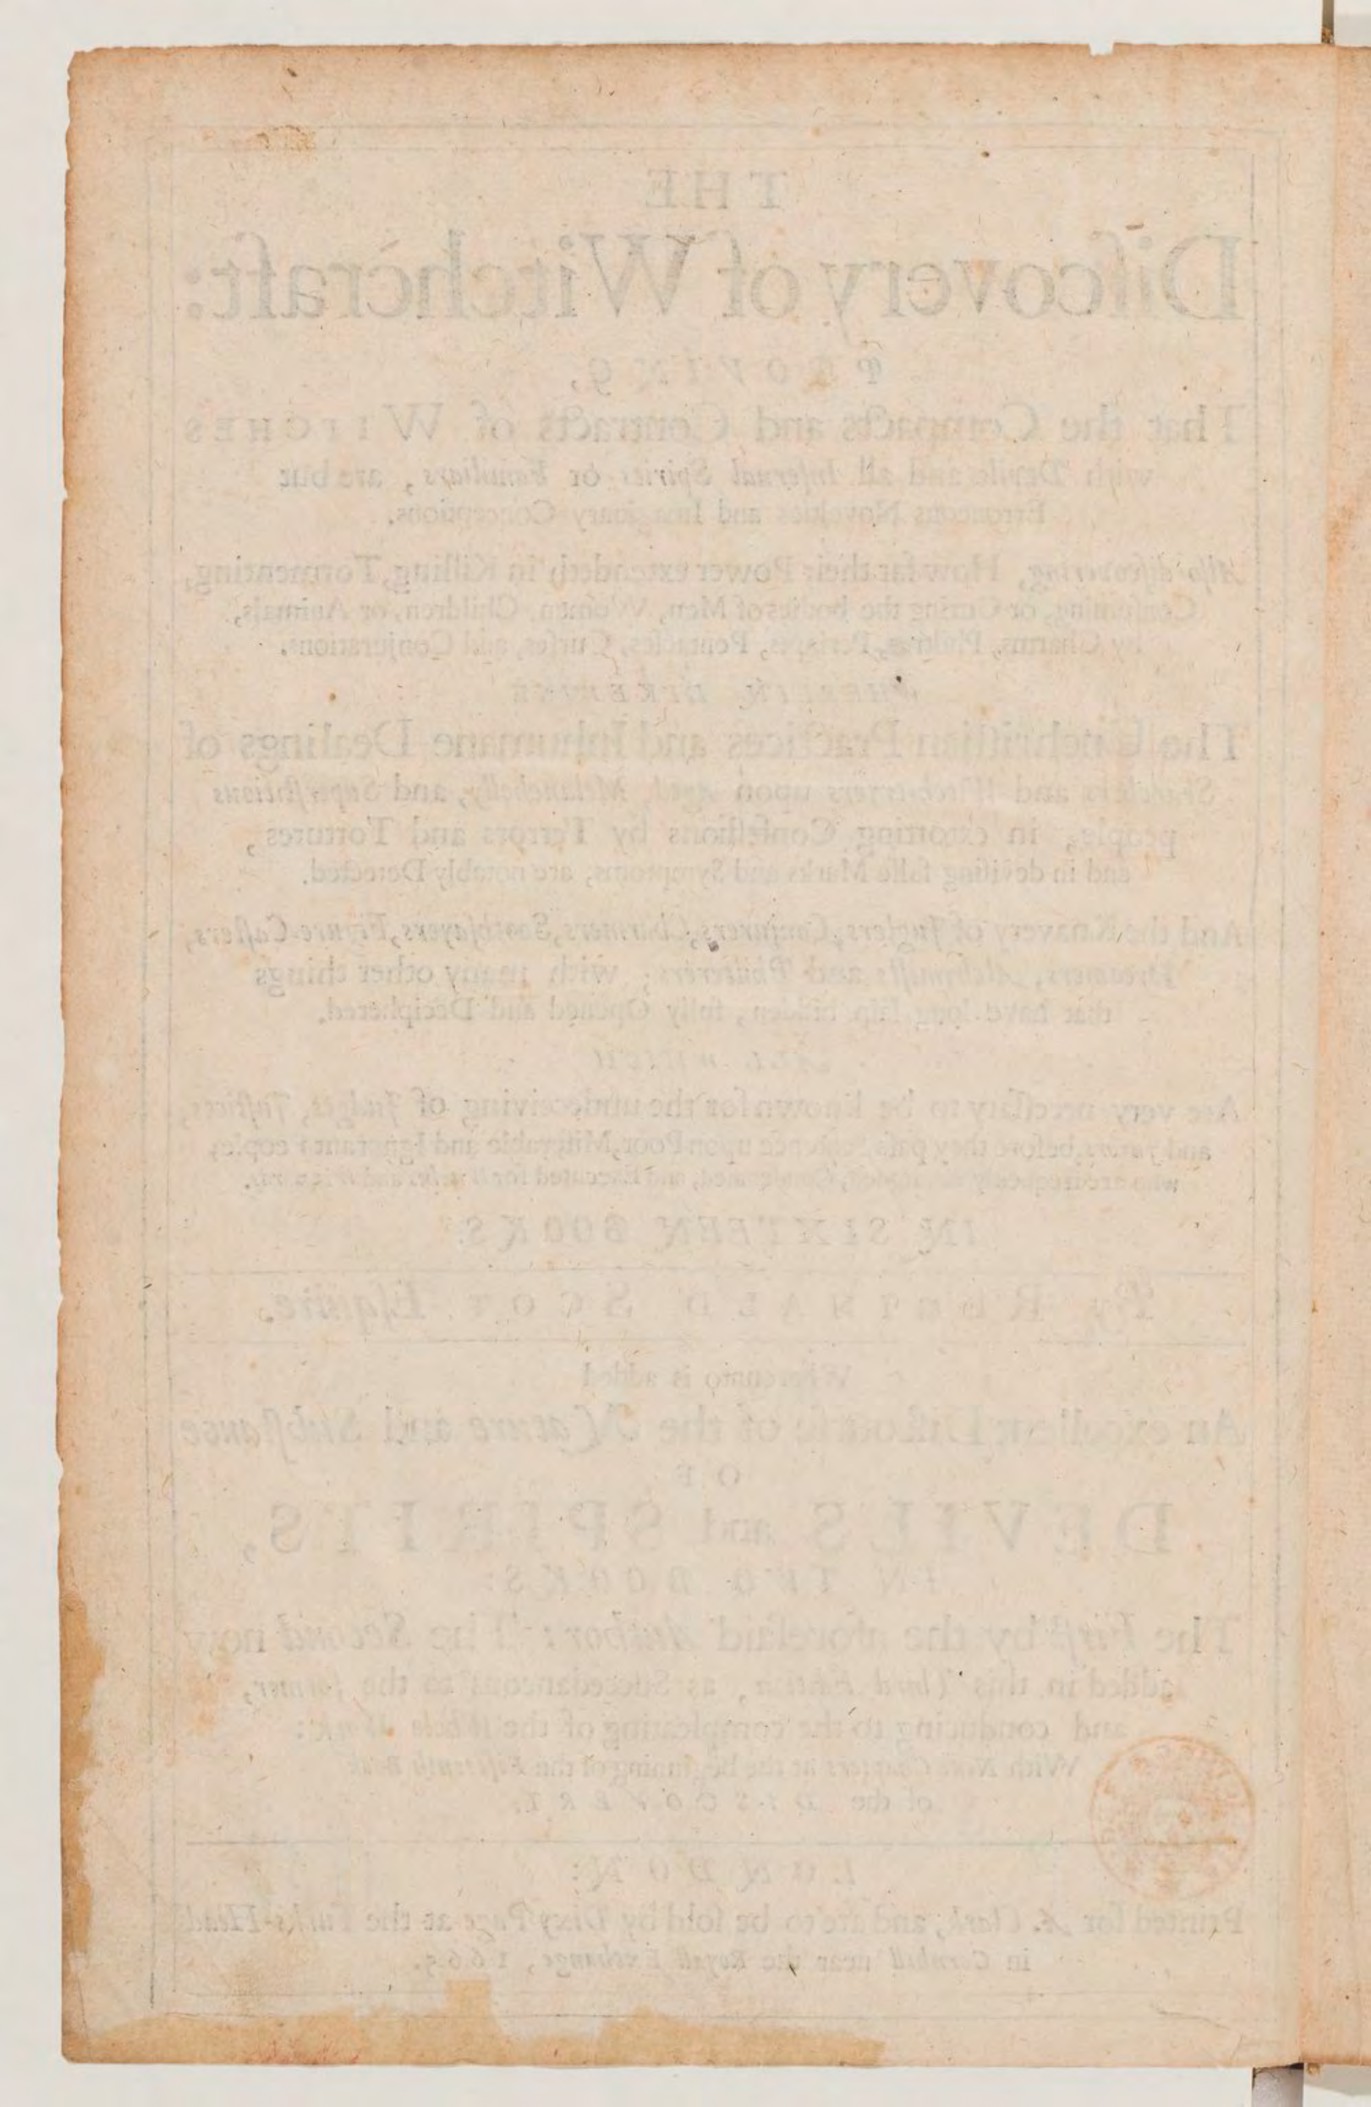 THE
Diſcovery of Witchcraft:
PROVING,
That the Compacts and Contracts of WITCHES
with Devils and all Infernal Spirits or Familiars, are but
Erroneous Novelties and Imaginary Conceptions.
Alſo diſcovering, How far their Power extendeth in Killing, Tormenting,
Conſuming, or Curing the bodies of Men, Women, Children, or Animals,
by Charms, Philtres, Periapts, Pentacles, Curſes, and Conjurations.
WHEREIN LIKEWISE
The Unchriſtian Practices and Inhumane Dealings of
Searchers and Witch-tryers upon Aged, Melancholly, and Superſtitious
people, in extorting Confeſſions by Terrors and Tortures,
and in deviſing falſe Marks and Symptoms, are notably Detected.
And the Knavery of Juglers, Conjurers, Charmers, Soothſayers, Figure-Caſters,
Dreamers, Alchymiſts and Philterers; with many other things
that have long lain hidden, fully Opened and Deciphered.
ALL WHICH
Are very neceſſary to be known for the undeceiving of Judges, Juſtices,
and Jurors, before they paſs Sentence upon Poor, Miſerable and Ignorant People;
who are frequently Arraigned, Condemned, and Executed for Witches and Wizzards.
IN SIXTEEN BOOKS.
By REGINALD SCOT Eſquire.
Whereunto is added
An excellent Diſcourſe of the Nature and Subſtance
OF
DEVILS and SPIRITS,
IN TWO BOOKS:
The Firſt by the aforeſaid Author: The Second now
added in this Third Edition, as Succedaneous to the former,
and conducing to the compleating of the Whole Work:
With Nine Chapters at the beginning of the Fifteenth Book
of the DISCOVERY.
LONDON:
Printed for A. Clark, and are to be ſold by Dixy Page at the Turks-Head
in Cornhill near the Royall Exchange, 1665.